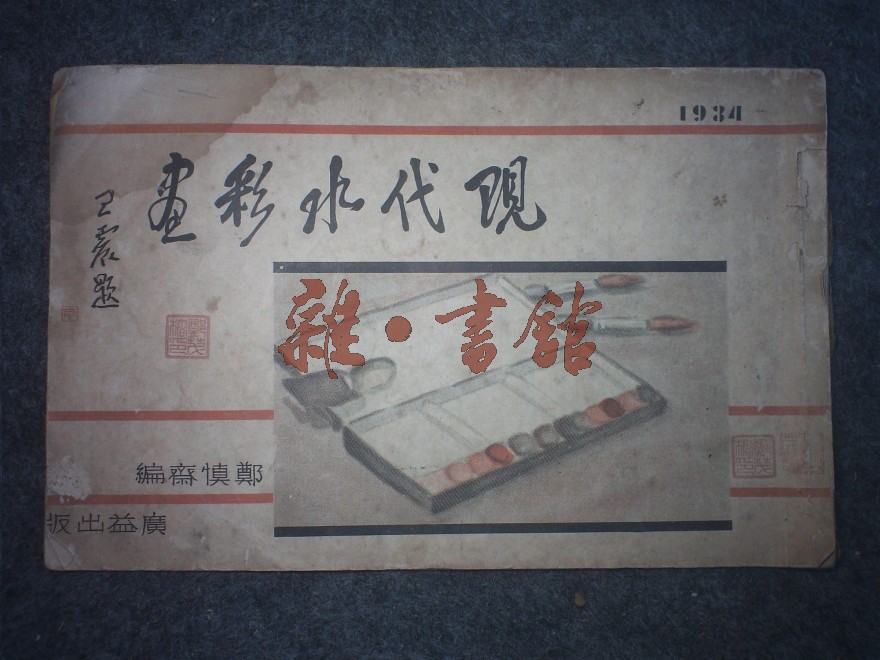 1934
現代水彩畫
王震題
雜·書館
鄭慎齋編
廣益出版